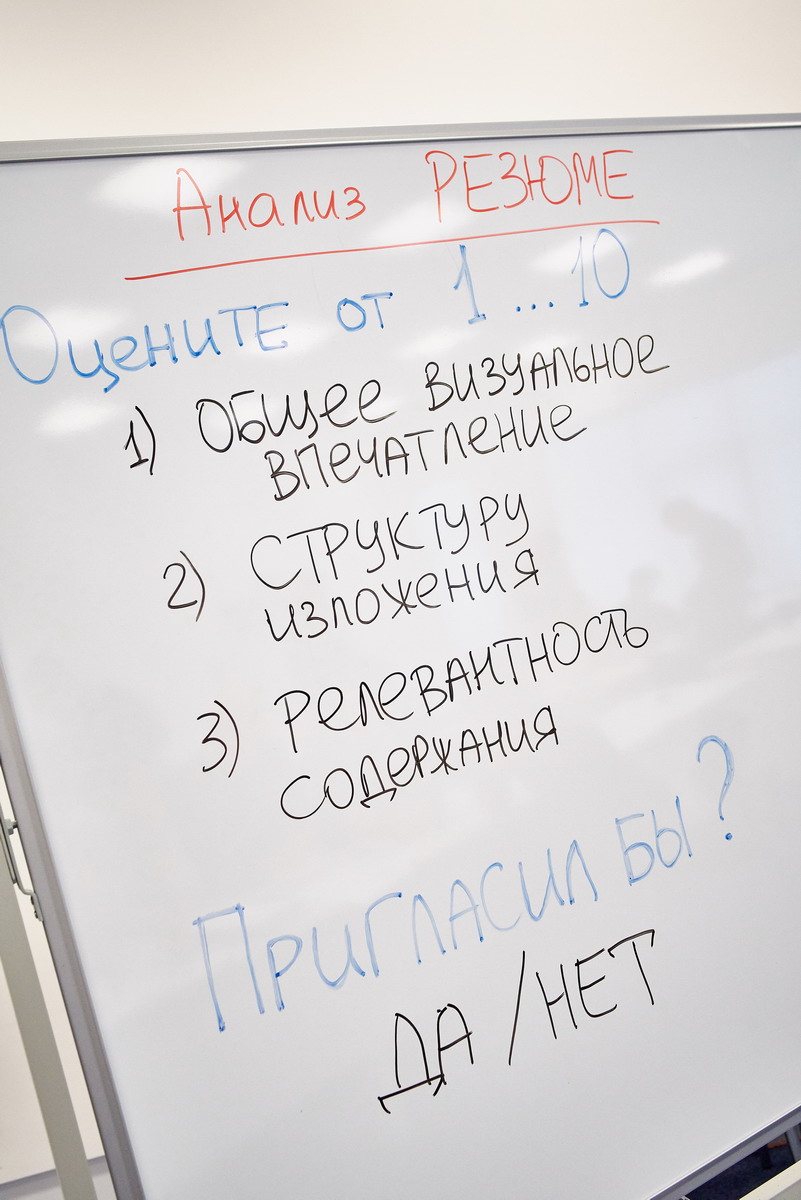 Анализ РЕЗЮМЕ
Оцените от 1...10
1) Общее визуальное
впечатление
2) Структуру
изложения
3) Релевантность
содержания
Пригласил бы?
ДА/НЕТ